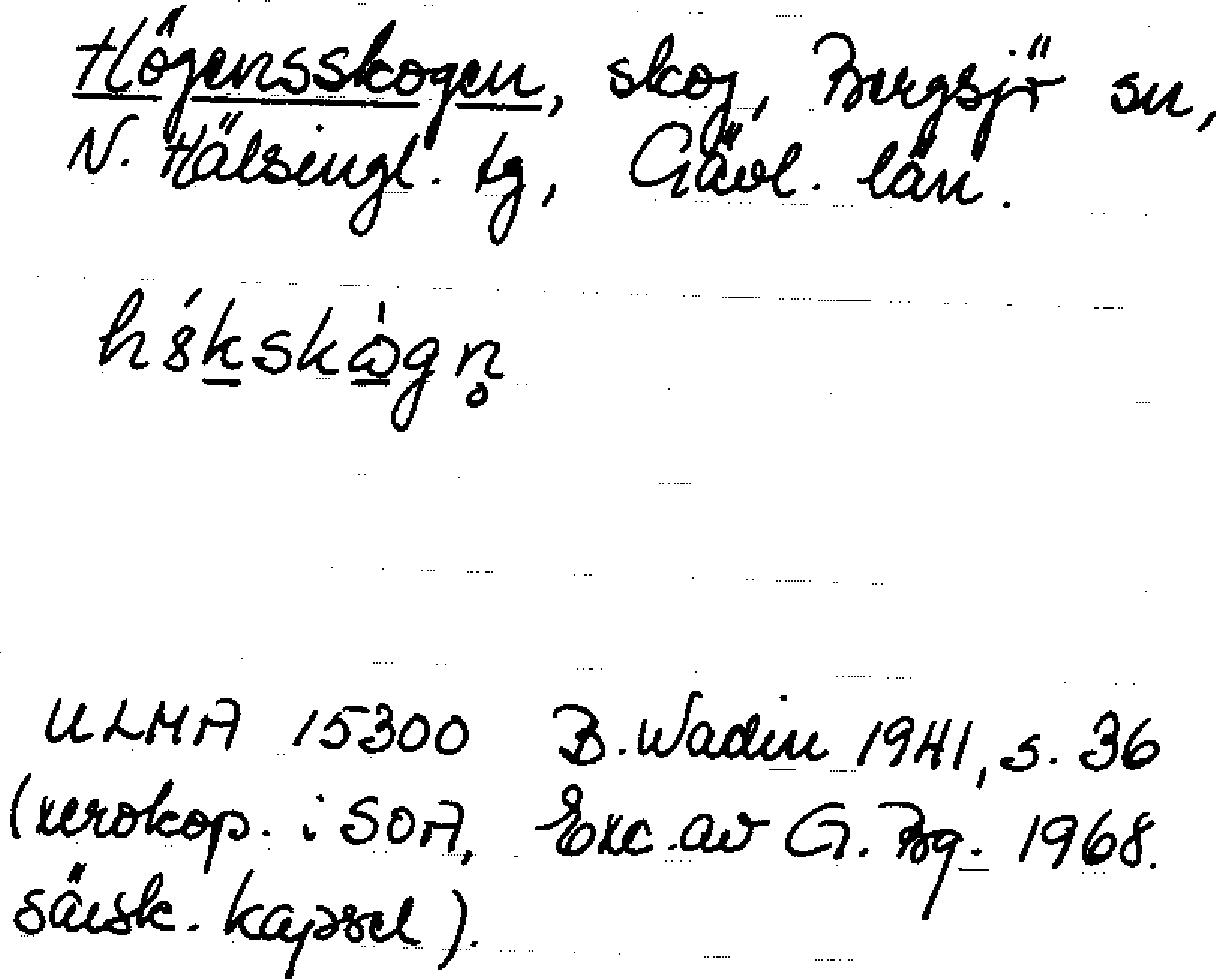 Högensskogen, skog, Bergsjö sn,
N. Hälsingl. tg, Gävl. län.
hȣ́kskɷ̀gn̥
ULMA 15300 B. Wadin 1941, s. 36
(xerokop. i SOA, Exc. av G. Bg. 1968.
särsk. kapsel).